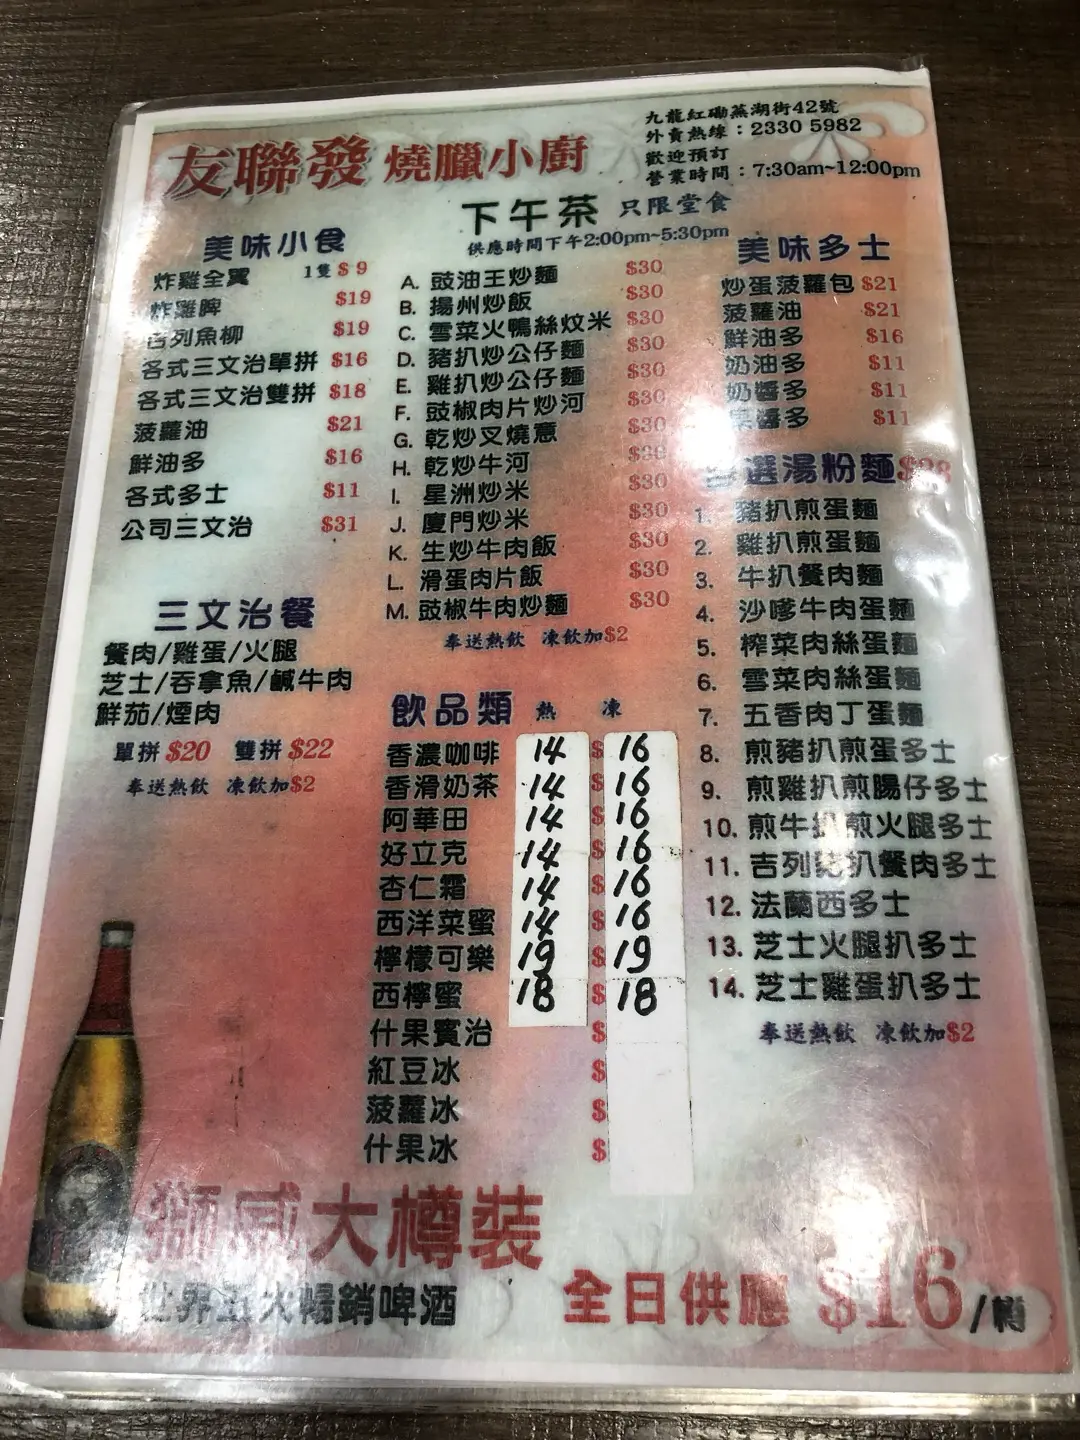 友聯發 燒臘小廚
九龍紅磡蕪湖街42號
外賣熱線：2330 5982
歡迎預訂
營業時間：7:30am~12:00pm
下午茶 只限堂食
供應時間下午2:00pm~5:30pm
美味小食
炸雞全翼 1隻 $9
炸雞脾 $19
吉列魚柳 $19
各式三文治單拼 $16
各式三文治雙拼 $18
菠蘿油 $21
鮮油多 $16
各式多士 $11
公司三文治 $31
三文治餐
餐肉/雞蛋/火腿
芝士/吞拿魚/鹹牛肉
鮮茄/煙肉
單拼 $20 雙拼 $22
奉送熱飲 凍飲加$2
A. 豉油王炒麵 $30
B. 揚州炒飯 $30
C. 雪菜火鴨絲炆米 $30
D. 豬扒炒公仔麵 $30
E. 雞扒炒公仔麵 $30
F. 豉椒肉片炒河 $30
G. 乾炒叉燒意 $30
H. 乾炒牛河 $30
I. 星洲炒米 $30
J. 廈門炒米 $30
K. 生炒牛肉飯 $30
L. 滑蛋肉片飯 $30
M. 豉椒牛肉炒麵 $30
奉送熱飲 凍飲加$2
飲品類 熱 凍
香濃咖啡 14 $ 16
香滑奶茶 14 $ 16
阿華田 14 $ 16
好立克 14 $ 16
杏仁霜 14 $ 16
西洋菜蜜 14 $ 16
檸檬可樂 19 $ 19
西檸蜜 18 $ 18
什果賓治 $
紅豆冰 $
菠蘿冰 $
什果冰 $
美味多士
炒蛋菠蘿包 $21
菠蘿油 $21
鮮油多 $16
奶油多 $11
奶醬多 $11
果醬多 $11
選湯粉麵
1. 豬扒煎蛋麵
2. 雞扒煎蛋麵
3. 牛扒餐肉麵
4. 沙嗲牛肉蛋麵
5. 榨菜肉絲蛋麵
6. 雪菜肉絲蛋麵
7. 五香肉丁蛋麵
8. 煎豬扒煎蛋多士
9. 煎雞扒煎腸仔多士
10. 煎牛扒煎火腿多士
11. 吉列豬扒餐肉多士
12. 法蘭西多士
13. 芝士火腿扒多士
14. 芝士雞蛋扒多士
奉送熱飲 凍飲加$2
獅威大樽裝
世界五大暢銷啤酒
全日供應 $16/樽